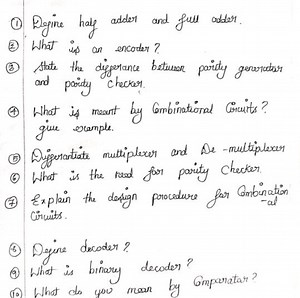 ① Define half adder and full adder.
② What is an encoder?
③ State the differance between parity generator
and parity checker.
④ What is meant by Combinational Circuits?
give example.
⑤ Differantiate multiplexer and De-multiplexer
⑥ What is the need for parity Checker.
⑦ Explain the design procedure for Combination
-al
Circuits.
⑧ Define decoder?
⑨ What is binary decoder?
⑩ What do you mean by Comparator?